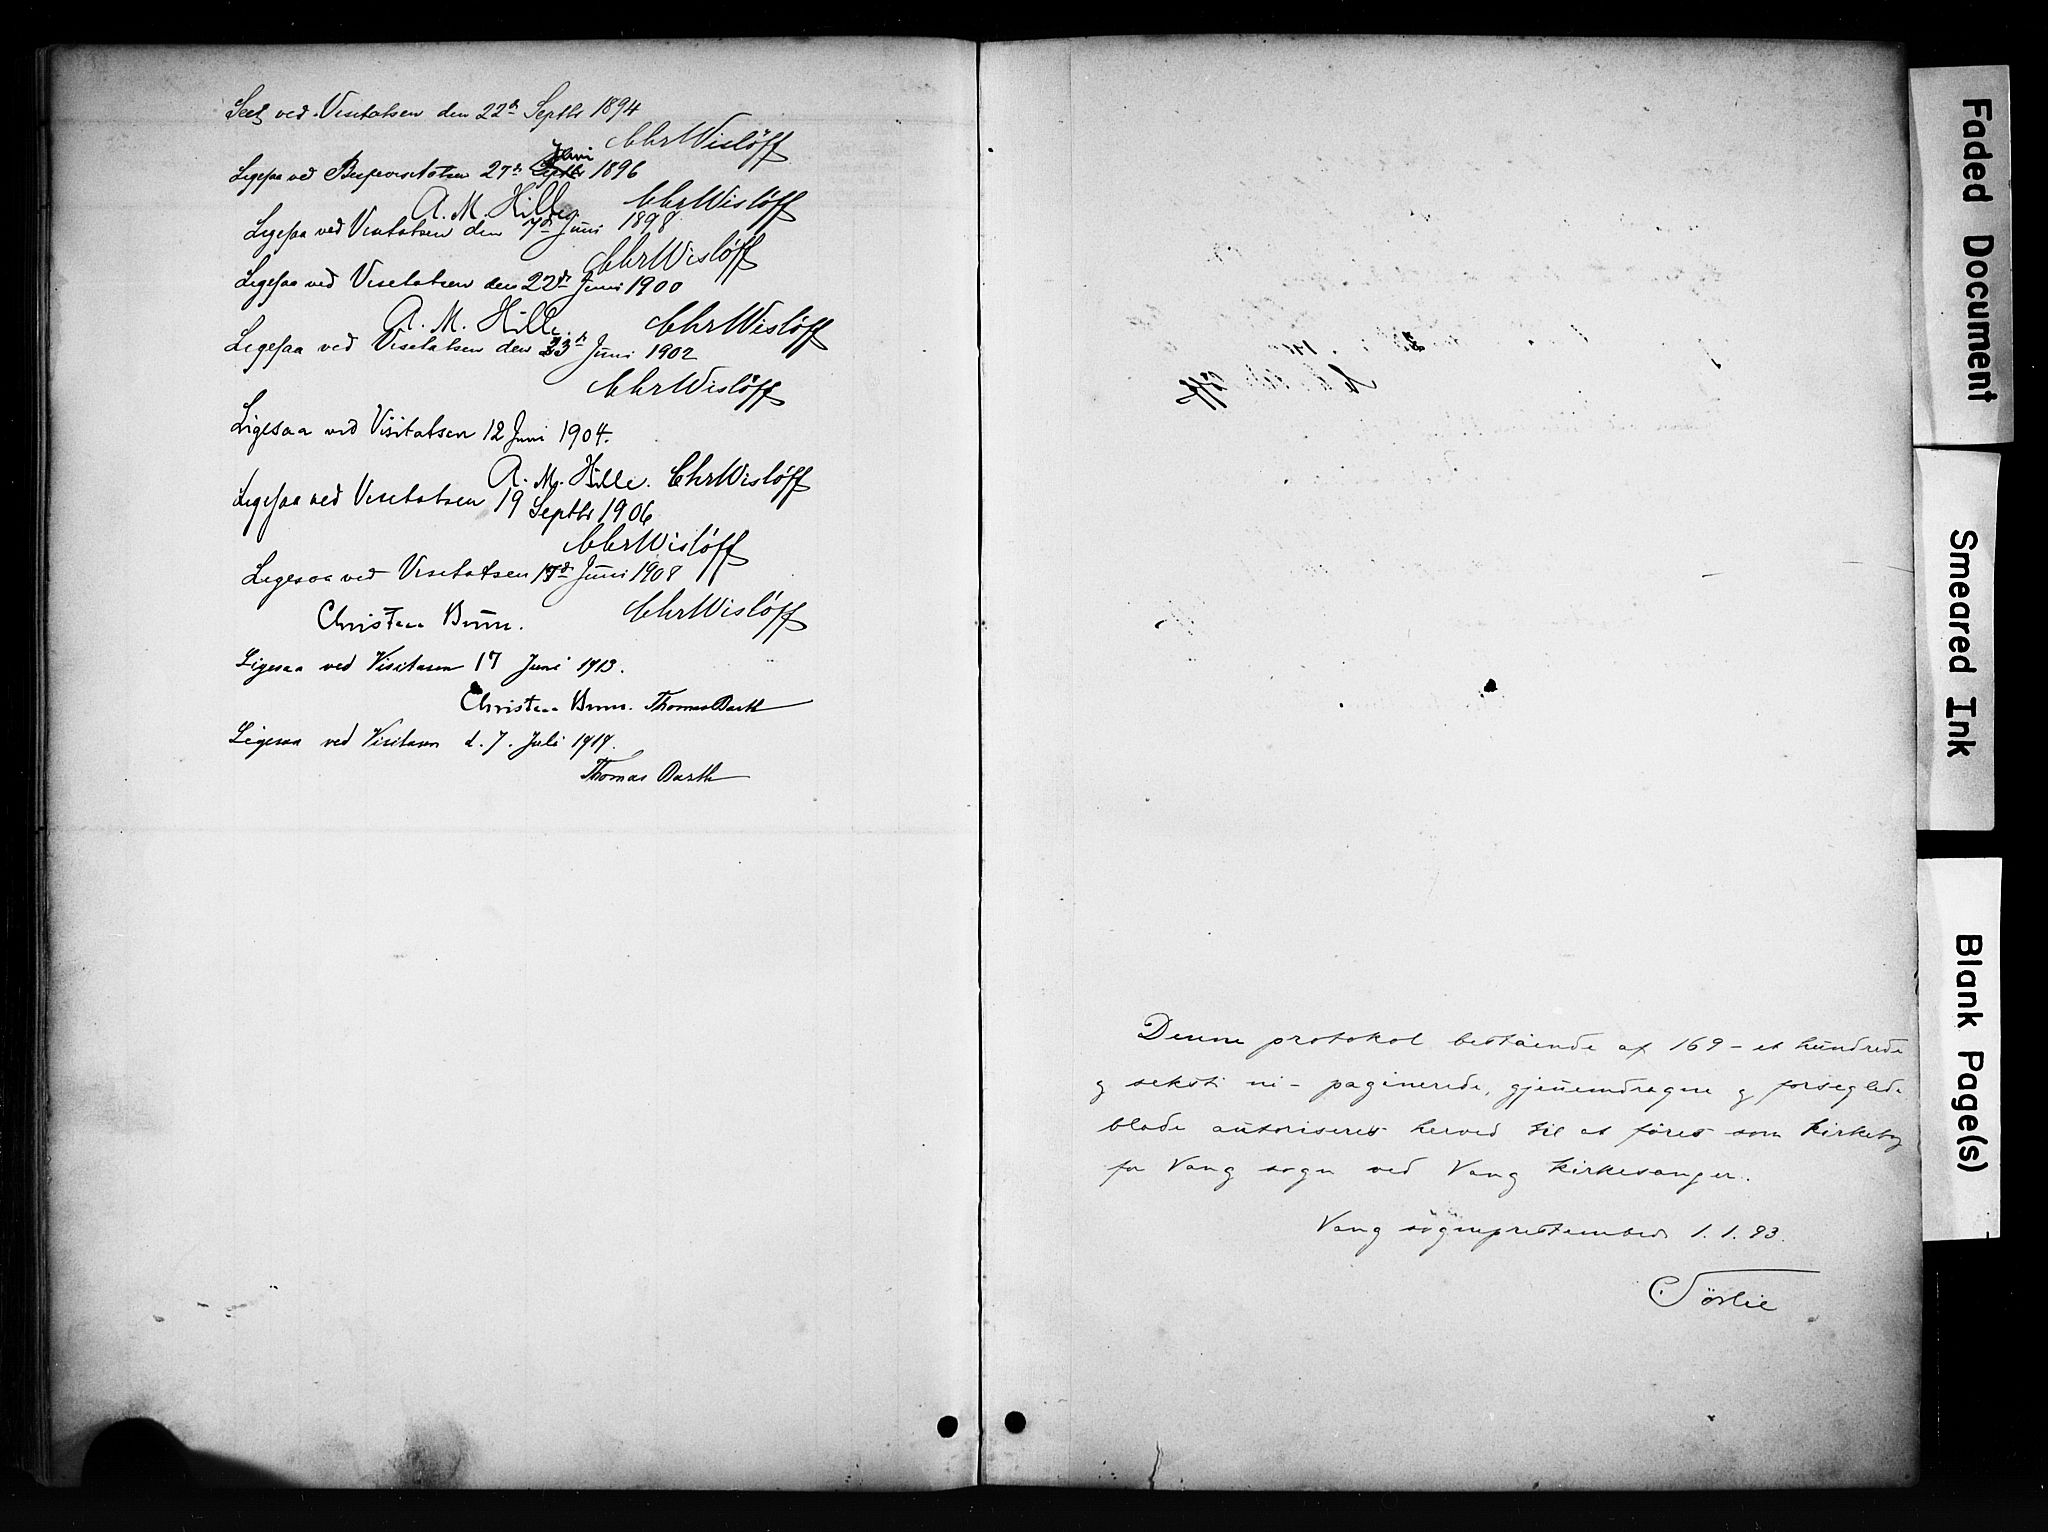 Seet ved Visitatsen den 22de Septbr 1894
Chr Wislöff
Ligesaa ved Bispevisitatsen 27de Juni 1896
A. M. Hille. Chr Wislöff
Ligesaa ved Visitatsen den 7de Juni 1898
Chr Wislöff
Ligesaa ved Visitatsen den 22de Juni 1900
A. M. Hille. Chr Wislöff
Ligesaa ved Visitatsen den 23de Juni 1902
Chr Wislöff
Ligesaa ved Visitatsen 12 Juni 1904.
A. M. Hille. Chr Wislöff
Ligesaa ved Visitatsen 19 Septbr 1906
Chr Wislöff
Ligesaa ved Visitatsen Juni 1908
Christen Brun. Chr Wislöff
Ligesaa ved Visitasen 17 Juni 1913.
Christen Brun. Thomas Barth
Ligesaa ved Visitasen d. 7. Juli 1919.
Thomas Barth
Denne protokol bestående af 169 – et hundrede
og seksti ni – paginerede, gjennemdragne og forseglede
blade autoriseres herved til at føres som kirkebog
for Vang sogn ved Vang kirkesanger.
Vang sogneprestembede 1. 1. 93.
Törlie
Faded Document
Smeared Ink
Blank Page(s)